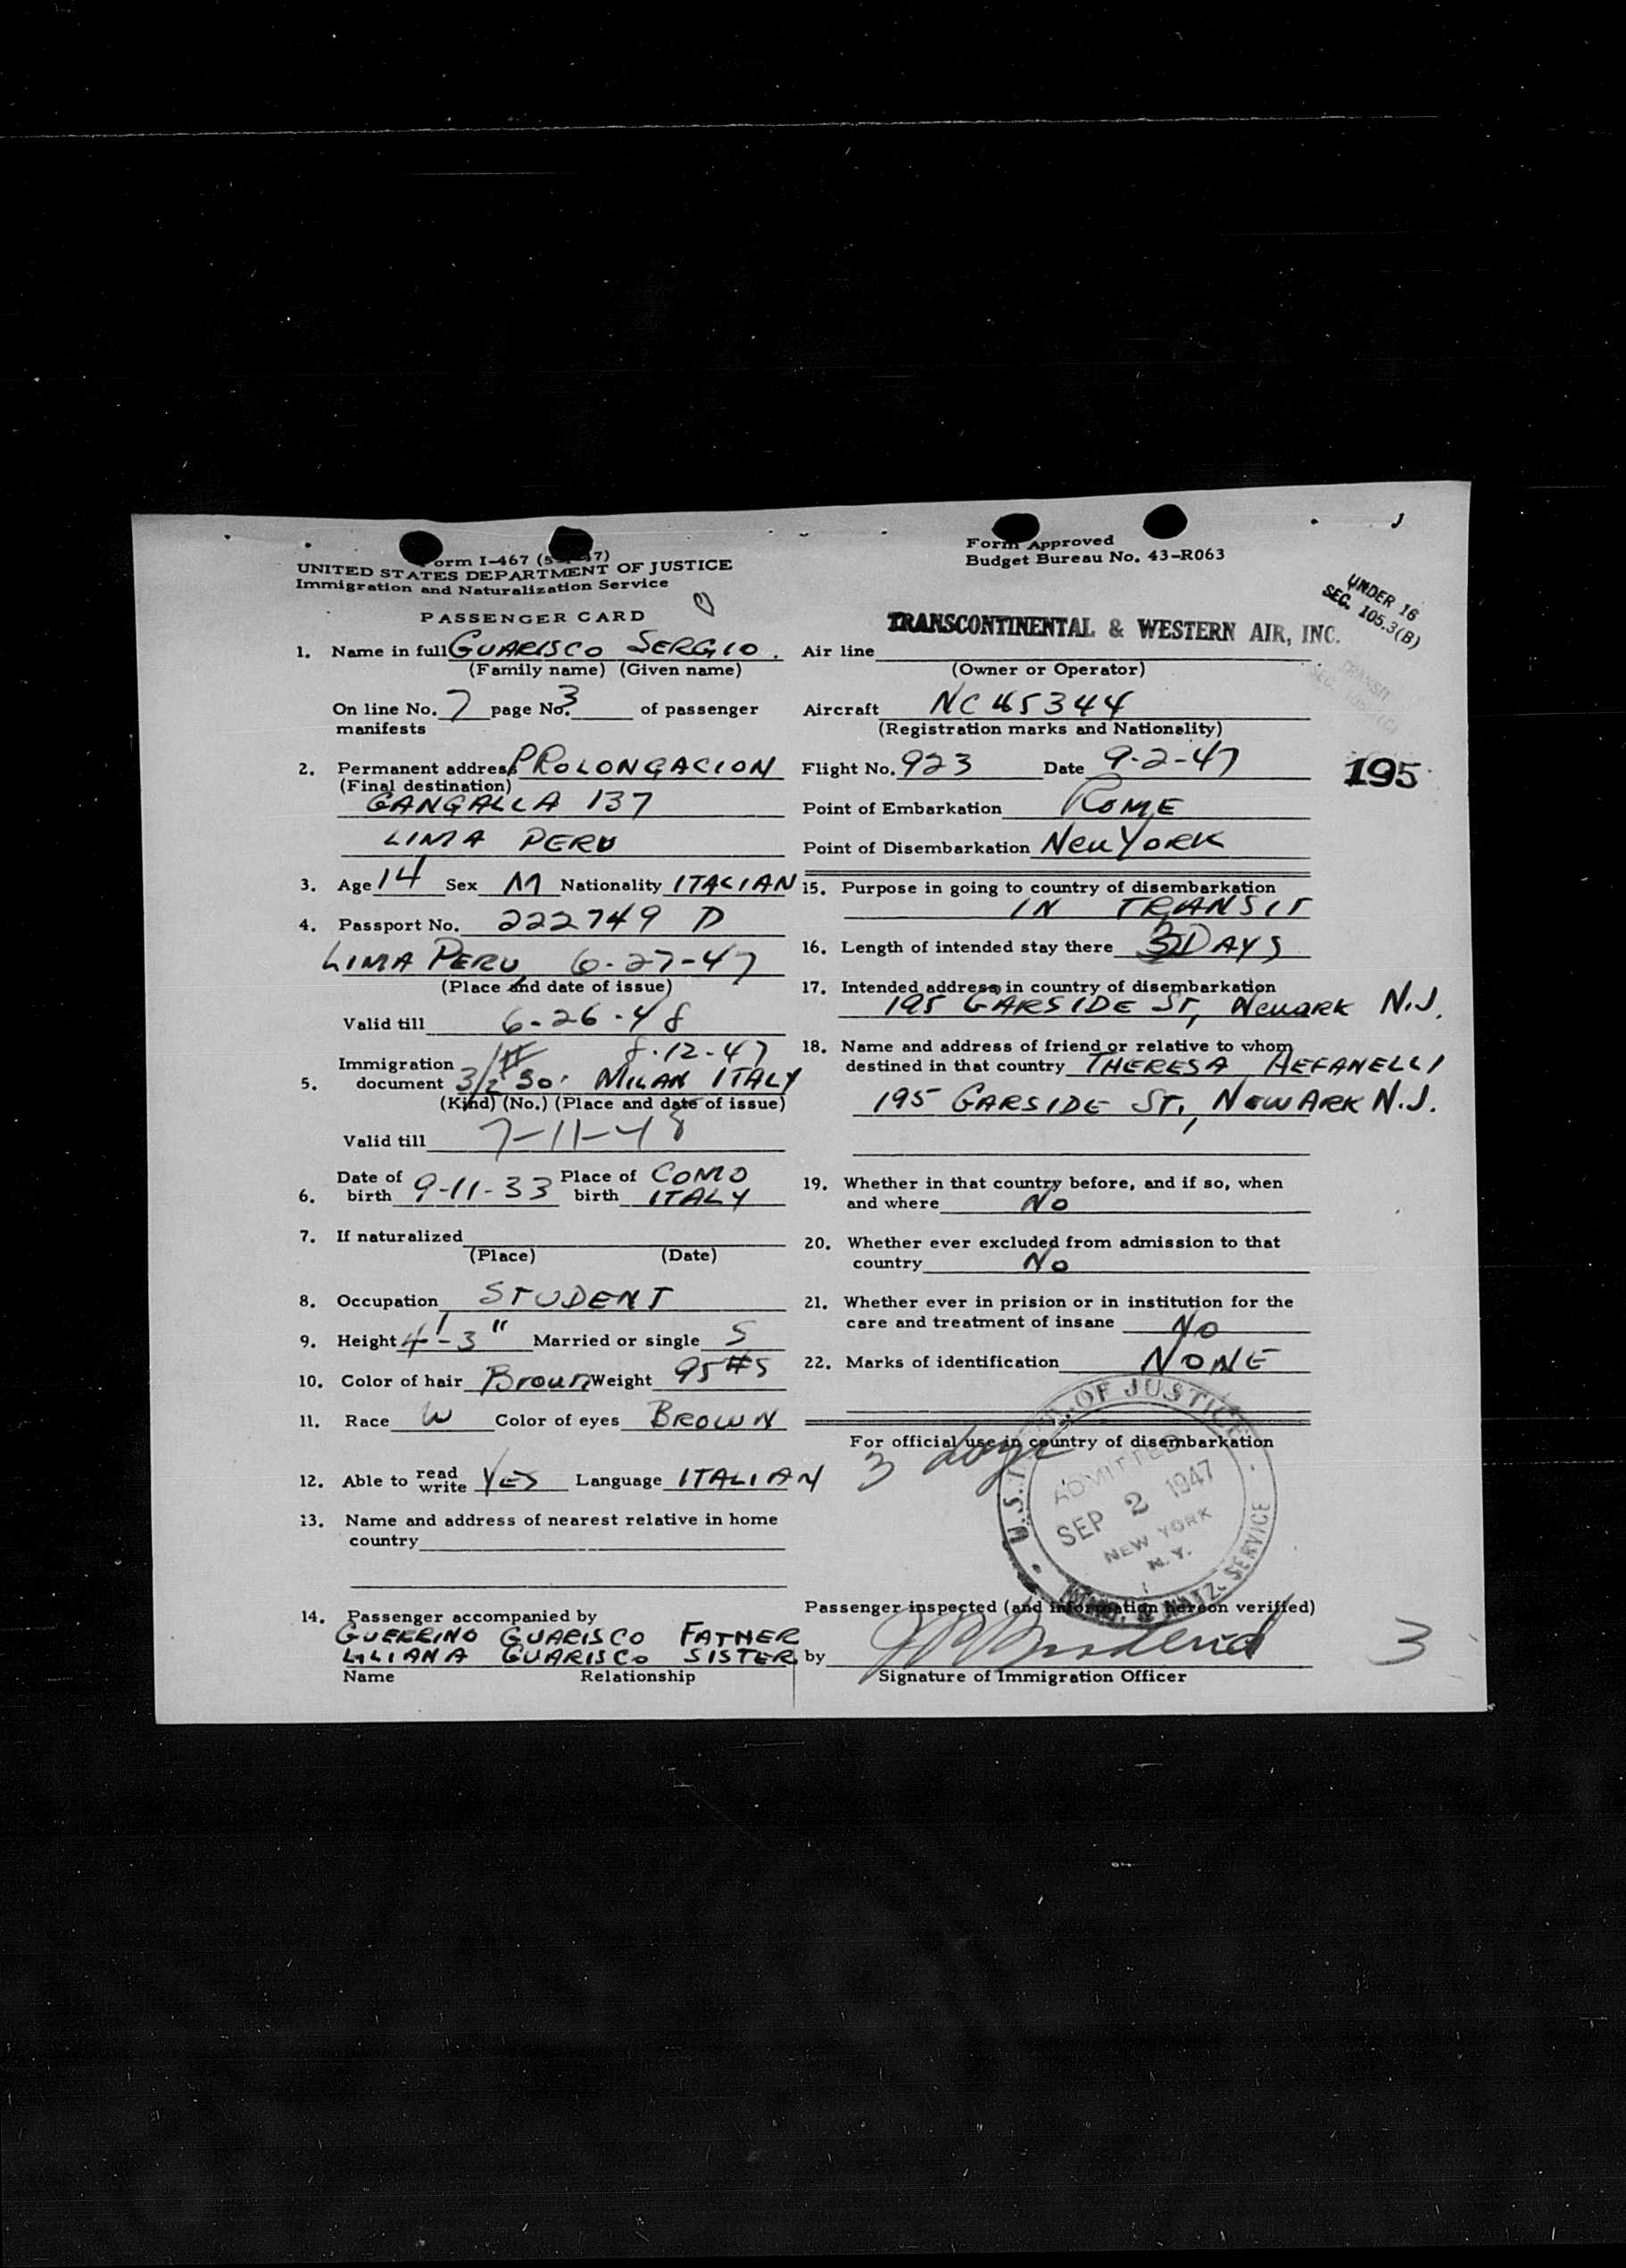 Form I-467
UNITED STATES DEPARTMENT OF JUSTICE
Immigration and Naturalization Service
PASSENGER CARD
1. Name in full GUARISCO SERGIO.
(Family name) (Given name)
On line No. 7 page No. 3 of passenger
manifests
2. Permanent address PROLONGACION
(Final destination)
GANGALLA 137
LIMA PERU
3. Age 14 Sex M Nationality ITALIAN
4. Passport No. 222749 D
LIMA PERU 6-27-47
(Place and date of issue)
Valid till 6-26-48
8-12-47
Immigration
5. document MILAN ITALY
(Kind) (No.) (Place and date of issue)
Valid till 7-11-48
6. Date of birth 9-11-33 Place of birth COMO ITALY
7. If naturalized
(Place) (Date)
8. Occupation STUDENT
9. Height 4'-3" Married or single S
10. Color of hair Broun Weight 95#s
11. Race W Color of eyes BROWN
12. Able to read write YES Language ITALIAN
13. Name and address of nearest relative in home
country
14. Passenger accompanied by
GUERRINO GUARISCO FATHER
LILIANA GUARISCO SISTER
Name Relationship
Form Approved
Budget Bureau No. 43-R063
UNDER 16
SEC. 105.3(B)
TRANSCONTINENTAL & WESTERN AIR, INC.
Air line
(Owner or Operator)
TRANSIT
Aircraft NC 45344
(Registration marks and Nationality)
Flight No. 923 Date 9-2-47
195
Point of Embarkation ROME
Point of Disembarkation New YORK
15. Purpose in going to country of disembarkation
IN TRANSIT
16. Length of intended stay there 3 DAYS
17. Intended address in country of disembarkation
195 GARSIDE ST, NewARK N.J.
18. Name and address of friend or relative to whom
destined in that country THERESA
195 GARSIDE ST, NEWARK N.J.
19. Whether in that country before, and if so, when
and where No
20. Whether ever excluded from admission to that
country No
21. Whether ever in prision or in institution for the
care and treatment of insane No
22. Marks of identification NONE
For official use in country of disembarkation
3 days
U.S. OF JUSTICE
ADMITTED
SEP 2 1947
NEW YORK
N.Y.
IMMI. & NATZ. SERVICE
Passenger inspected (and information hereon verified)
by
Signature of Immigration Officer
3